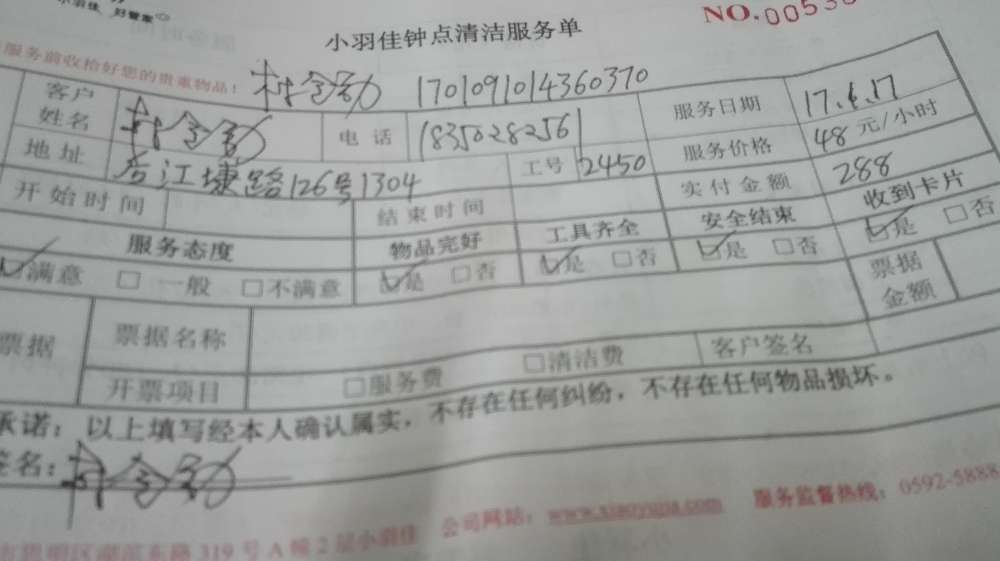 小羽佳 好管家
小羽佳钟点清洁服务单
NO.0053
服务前收拾好您的贵重物品！ 1701091014360370
客户姓名 电话 18350282561 服务日期 17.6.17
地址 杏江塘路126号1304 工号 2450 服务价格 48元/小时
开始时间 结束时间 实付金额 288
服务态度 物品完好 工具齐全 安全结束 收到卡片
☑满意 □一般 □不满意 ☑是 □否 ☑是 □否 ☑是 □否 ☑是 □否
票据 票据名称 票据金额
开票项目 □服务费 □清洁费 客户签名
承诺：以上填写经本人确认属实，不存在任何纠纷，不存在任何物品损坏。
签名：
319号A幢2层小羽佳 公司网站：www.xiaoyujia.com 服务监督热线：0592-5888